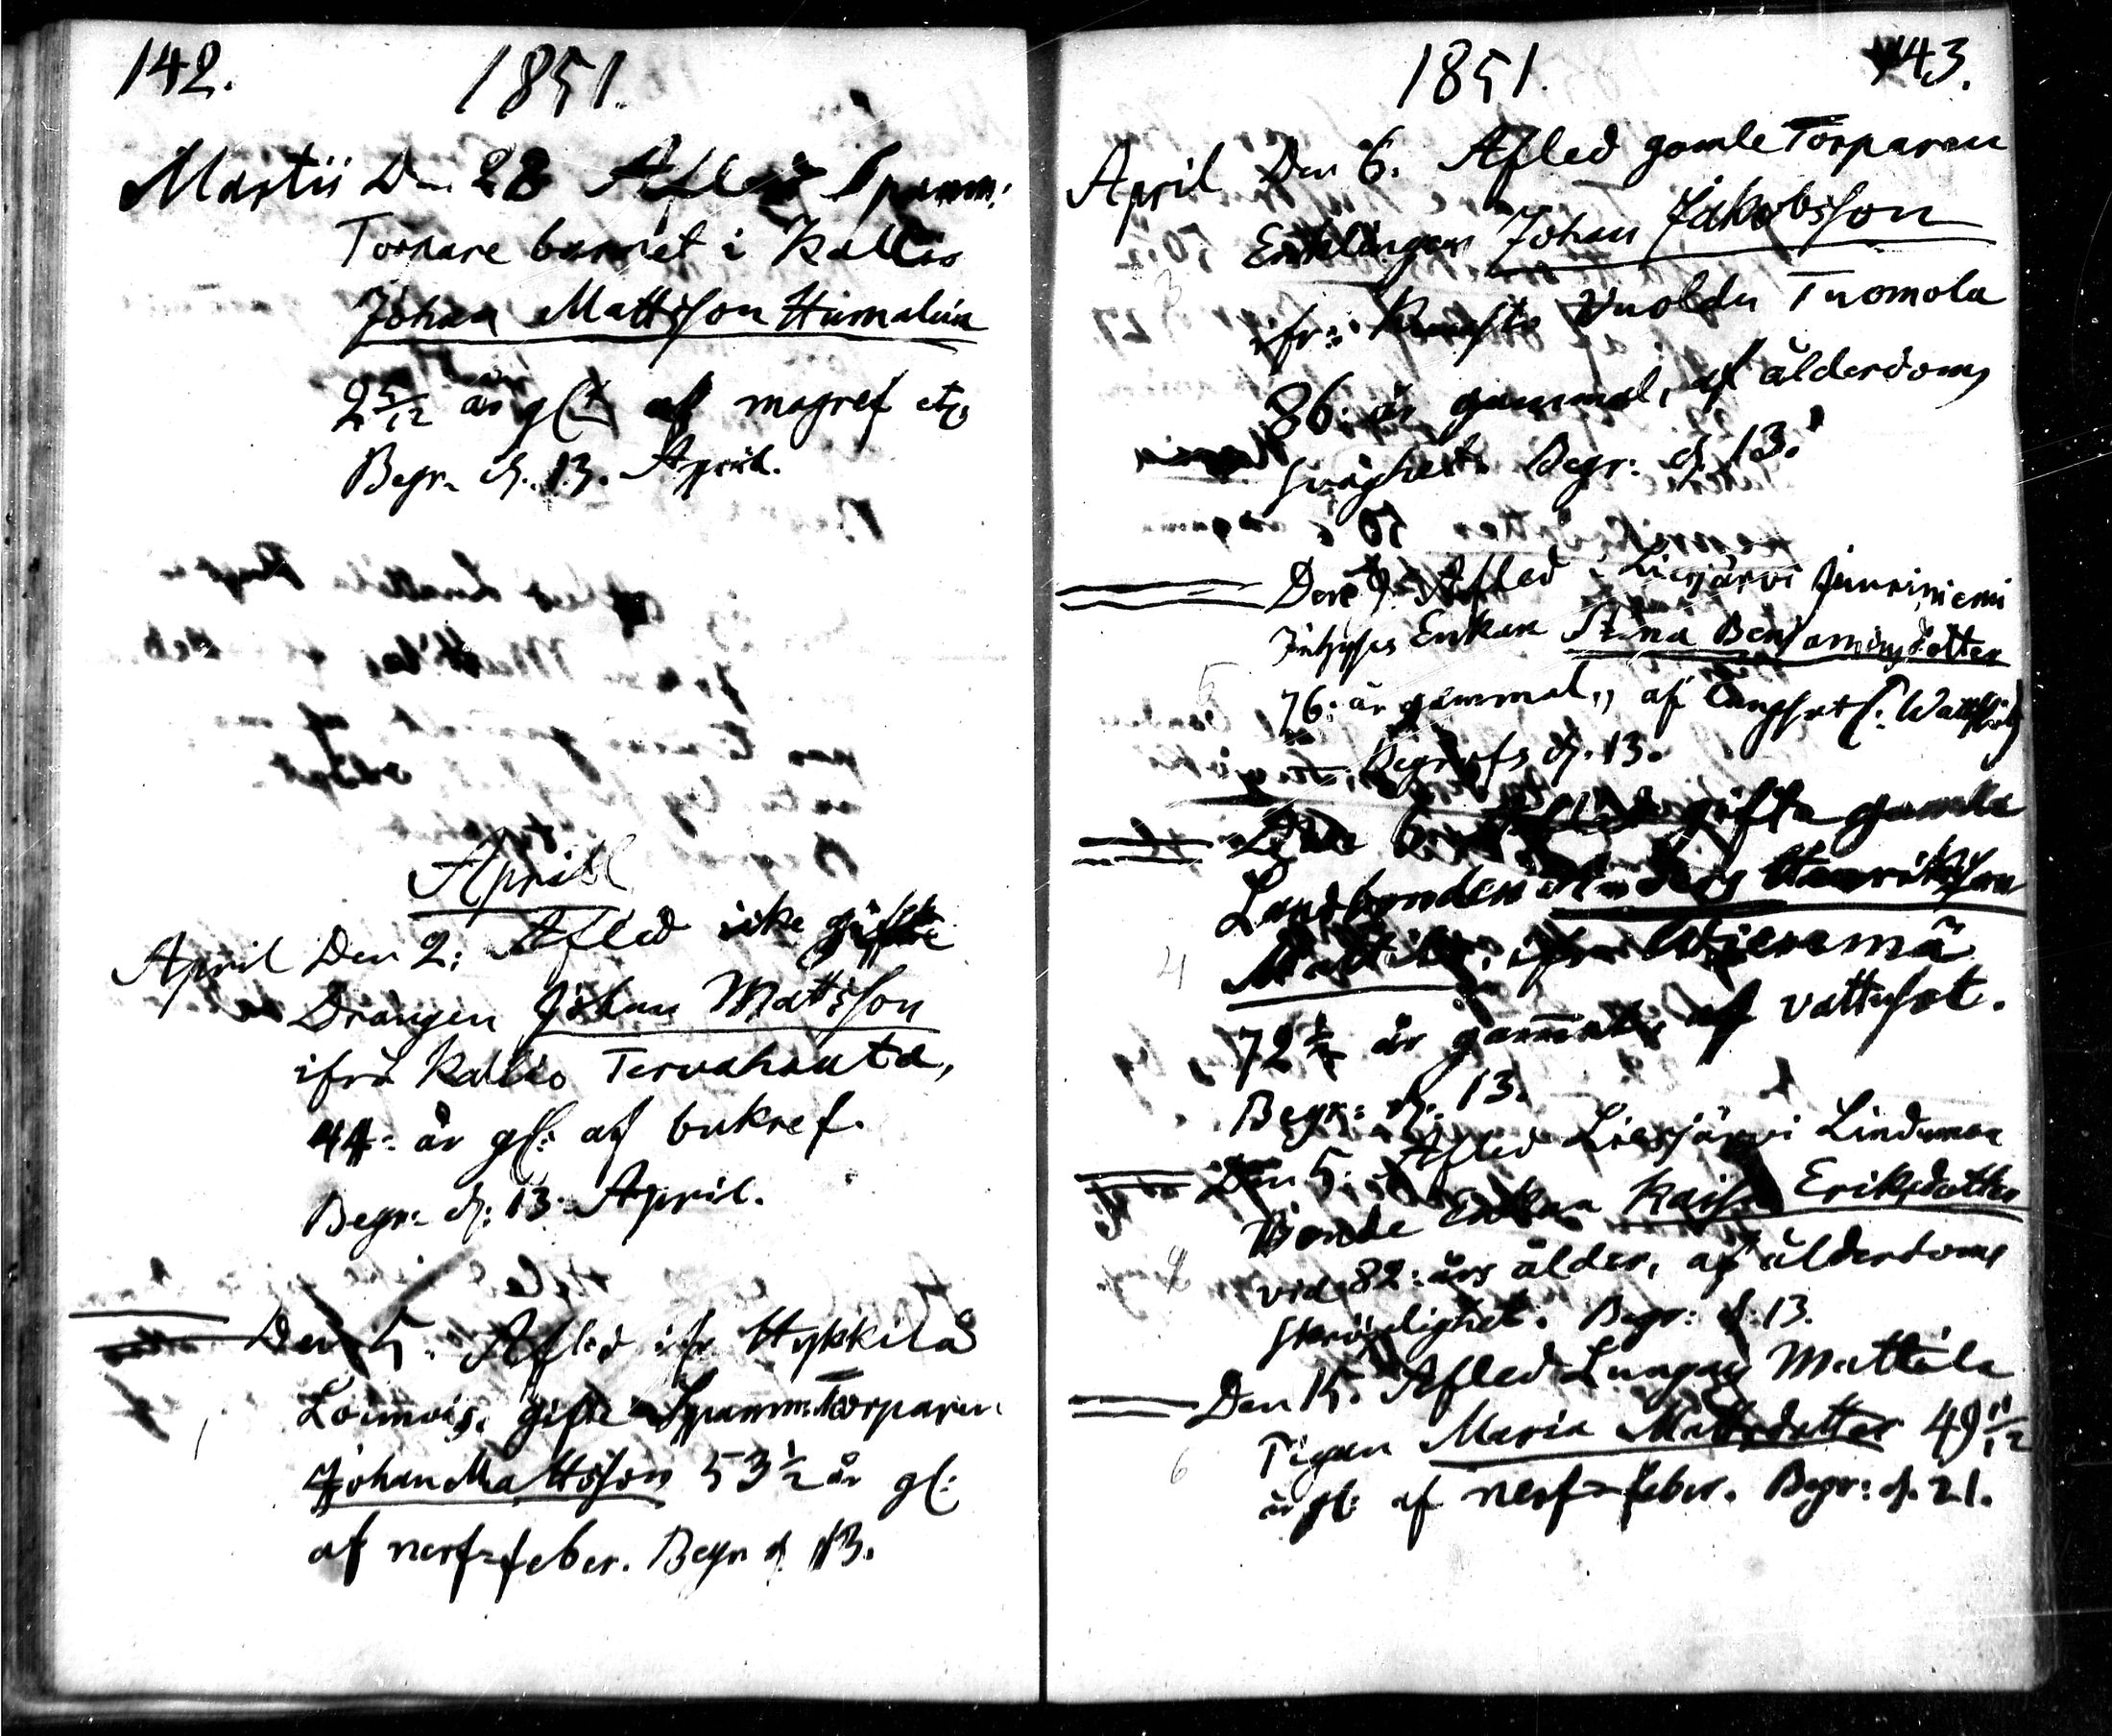 142.
1851.
Martii Den 28 Afled Spanm:
Torpare barnet i Kallio
Johan Mattsson Himalain
2 5/12 år gl: af magref etc
Begr. d. 13. April.
April
April Den 2: Afled icke gifte
Drängen Johan Mattsson
ifrå Kallio Tervahauta,
44: år gl: af bukref.
Begr: d: 13 April.
Den 5. Afled ifr Hykkilä
Loimois. gifte Spanm: Torparen
Johan Mattsson 53 1/2 år gl:
af nerf=feber. Begr d. 13.
1851.
143.
April Den 6. Afled gamle Torparen
Enklingen Johan Jakobsson
ifr: Tuomola
86: år gammal, af ålderdoms
svaghet. Begr: d. 13.
Den 9. Afled i Liesjärvi
Inhyses Enkan Stina Benjaminsdotter
76: år gammal, af
Begrofs d. 13.
Den 6. Afled gifta gamla
Landbonden Anders Henriksson
Mattila, ifr
72 år gammal, af vattusot.
Begr: d. 13.
Den 5. Afled Liesjärvi Lindunoa
Bonde Enkan Kaisa Eriksdotter
vid 82: års ålder, af ålderdoms
skröpelighet. Begr: d. 13.
Den 15. Afled Lungas Mattila
Pigan Maria Mattsdotter 49 11/12
år gl: af nerf=feber. Begr: d. 21.